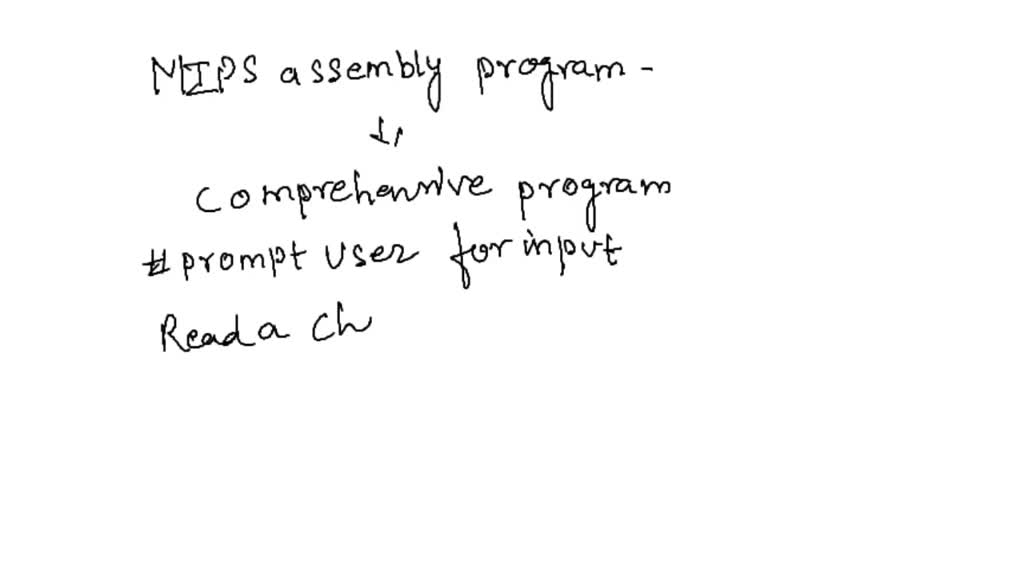 MIPS assembly program -
Comprehensive program
# prompt user for input
Read a ch